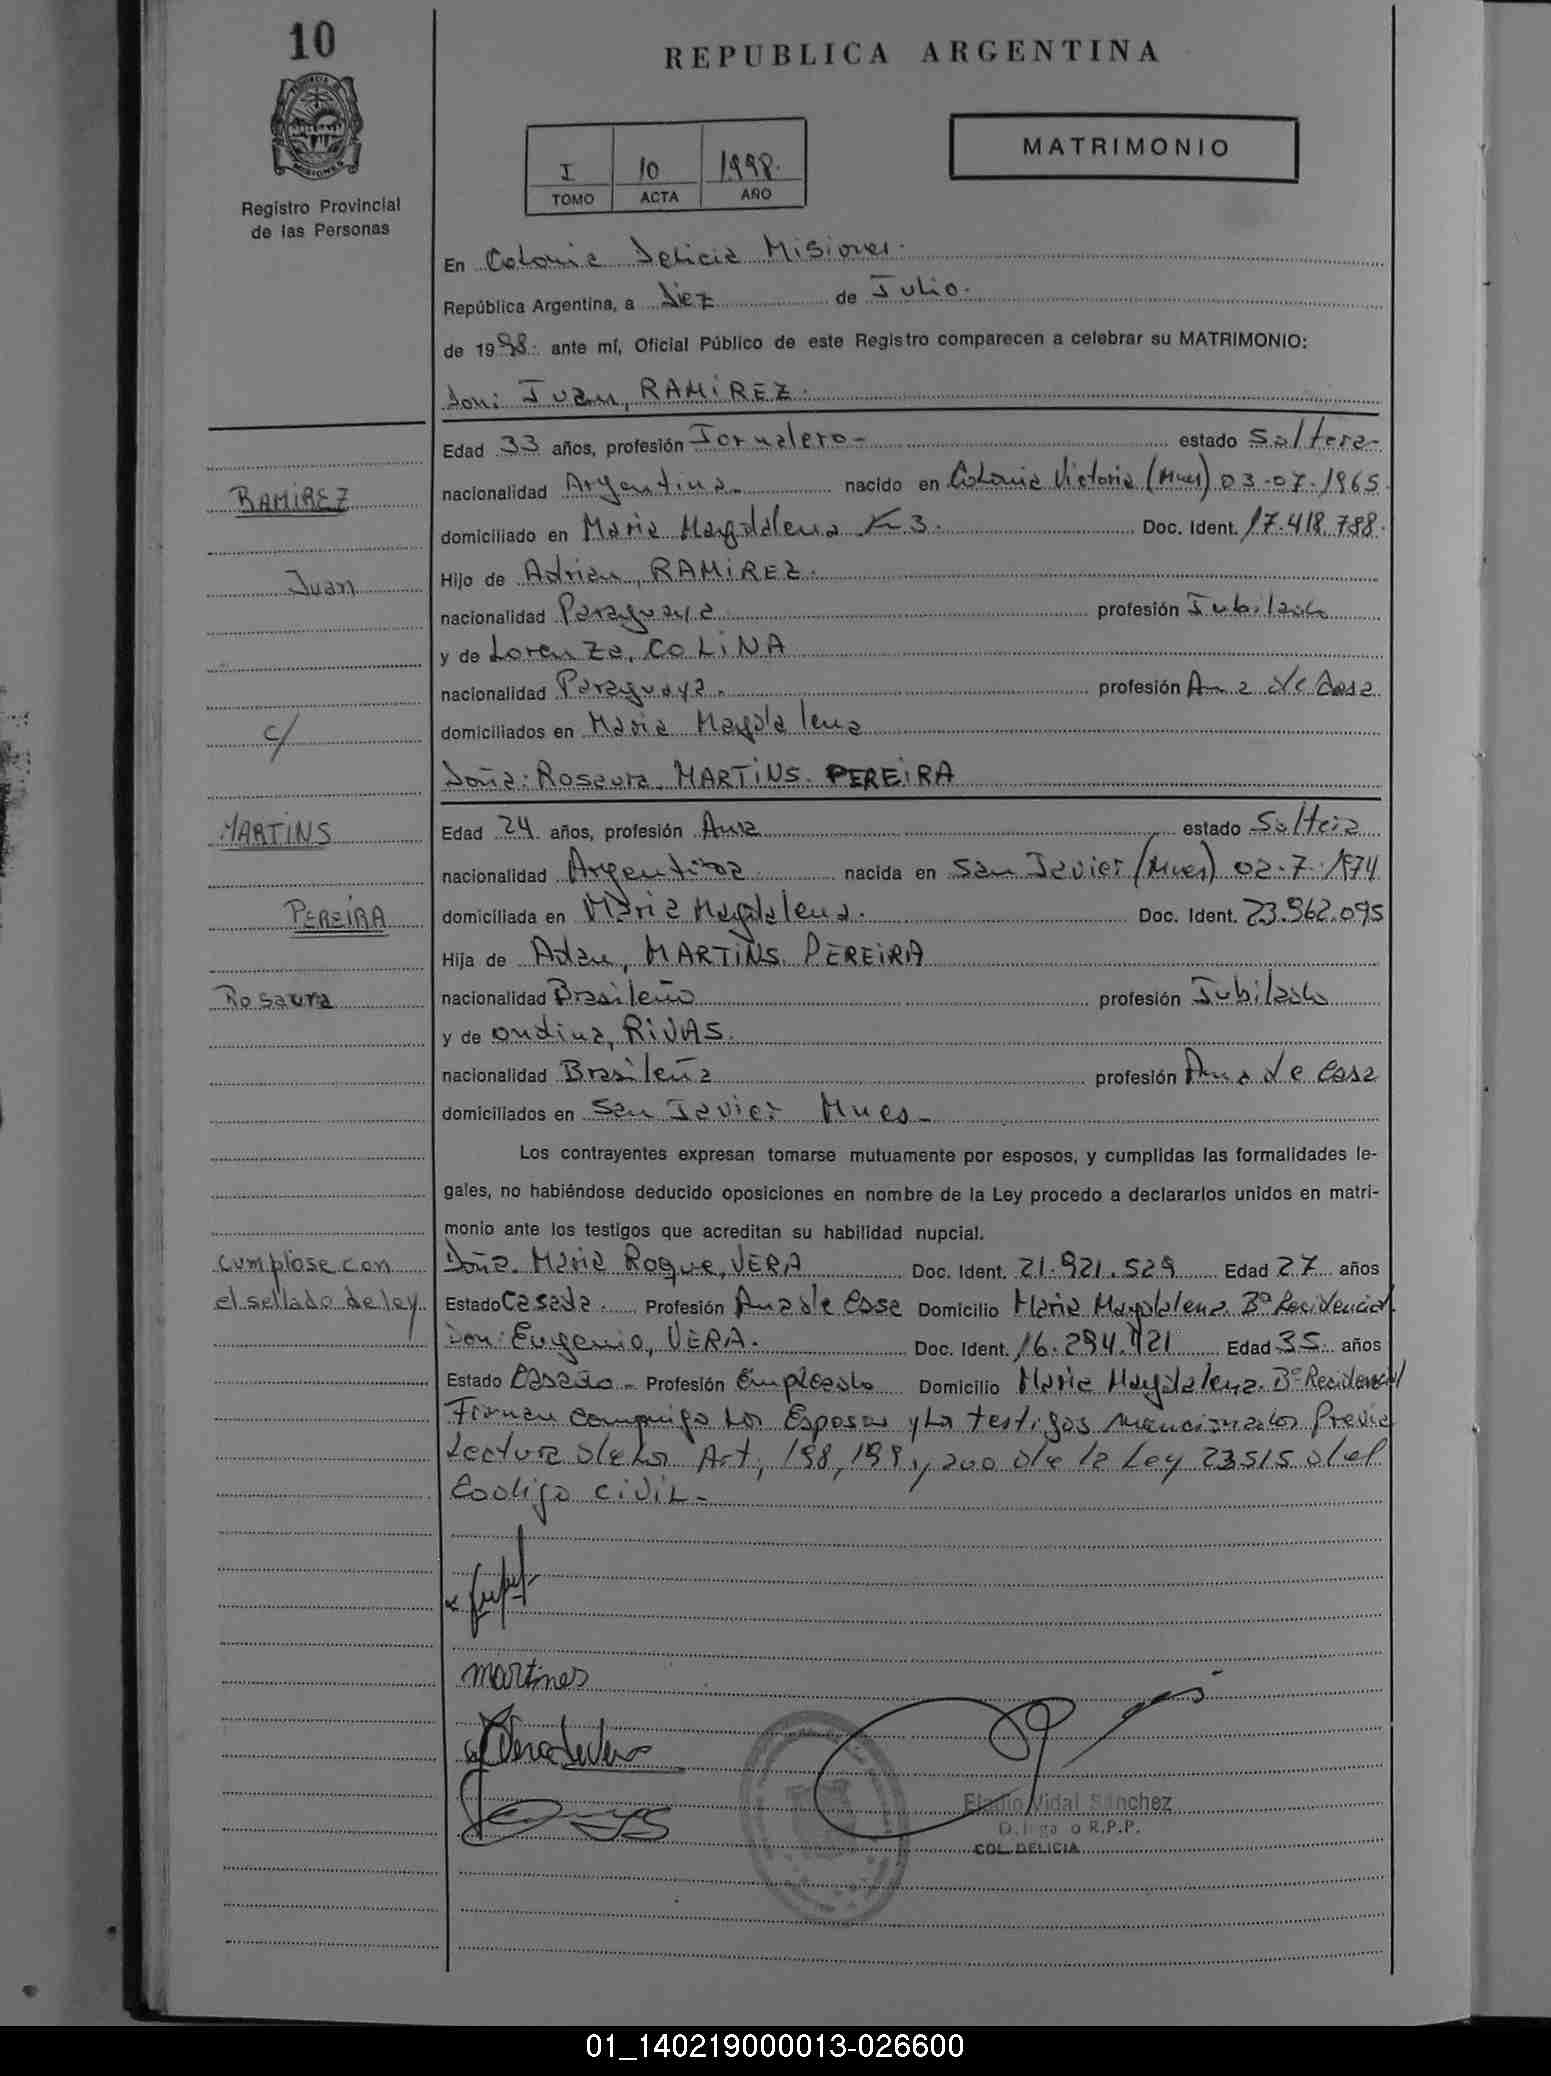 10
REPUBLICA ARGENTINA
MATRIMONIO
I 10 1998.
TOMO ACTA AÑO
Registro Provincial
de las Personas
En Colonia Delicia Misiones.
República Argentina, a Diez de Julio.
de 1998. ante mí, Oficial Público de este Registro comparecen a celebrar su MATRIMONIO:
Don: Juan, RAMIREZ.
Edad 33 años, profesión Jornalero- estado Soltera-
RAMIREZ
nacionalidad Argentina. nacido en Colonia Victoria (Mnes) 03-07-1965.
domiciliado en Maria Magdalena K 3. Doc. Ident. 17.418.788.
Juan
Hijo de Adrian, RAMIREZ.
nacionalidad Paraguaya profesión Jubilado
y de Lorenza, COLINA
nacionalidad Paraguaya. profesión Ama de Casa
c/
domiciliados en Maria Magdalena
Doña: Rosaura, MARTINS. PEREIRA
MARTINS
Edad 24 años, profesión Ama estado Soltera
nacionalidad Argentina nacida en San Javier (Mnes) 02-7-1974
PEREIRA
domiciliada en Maria Magdalena. Doc. Ident. 23.962.095
Hija de Adan, MARTINS. PEREIRA
Rosaura
nacionalidad Brasileño profesión Jubilado
y de Ondina, RIVAS.
nacionalidad Brasileña profesión Ama de Casa
domiciliados en San Javier Mnes-
Los contrayentes expresan tomarse mutuamente por esposos, y cumplidas las formalidades le-
gales, no habiéndose deducido oposiciones en nombre de la Ley procedo a declararlos unidos en matri-
monio ante los testigos que acreditan su habilidad nupcial.
cumplase con
el sellado de ley
Doña. Maria Roque, VERA Doc. Ident. 21.921.529 Edad 27 años
Estado Casada. Profesión Ama de Casa Domicilio Maria Magdalena Bº Residencial
Don: Eugenio, VERA. Doc. Ident. 16.294.421 Edad 35. años
Estado Casado- Profesión Empleado Domicilio Maria Magdalena. Bº Residencial
Firman conmigo los Esposos y los testigos mencionados Previa
Lectura de los Art, 198, 199, y 200 de la Ley 23515 del
Codigo civil-
martines
Eladio Vidal Sánchez
R.P.P.
COL. DELICIA
01_140219000013-026600